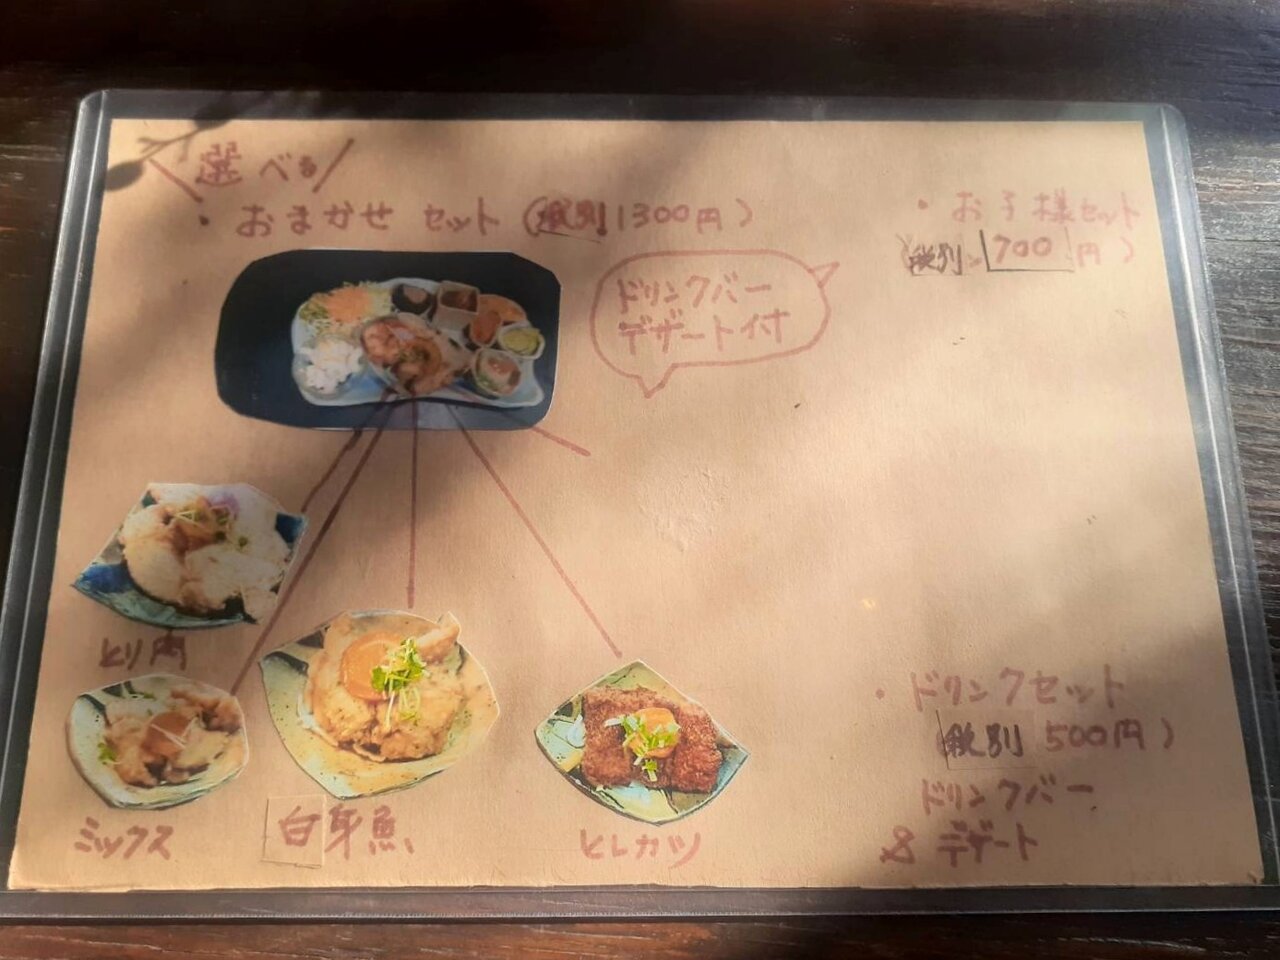 選べる
・おまかせセット(税別1300円)
ドリンクバー
デザート付
・お子様セット
(税別 700円)
とり肉
ミックス
白身魚
ヒレカツ
・ドリンクセット
(税別 500円)
ドリンクバー
& デザート